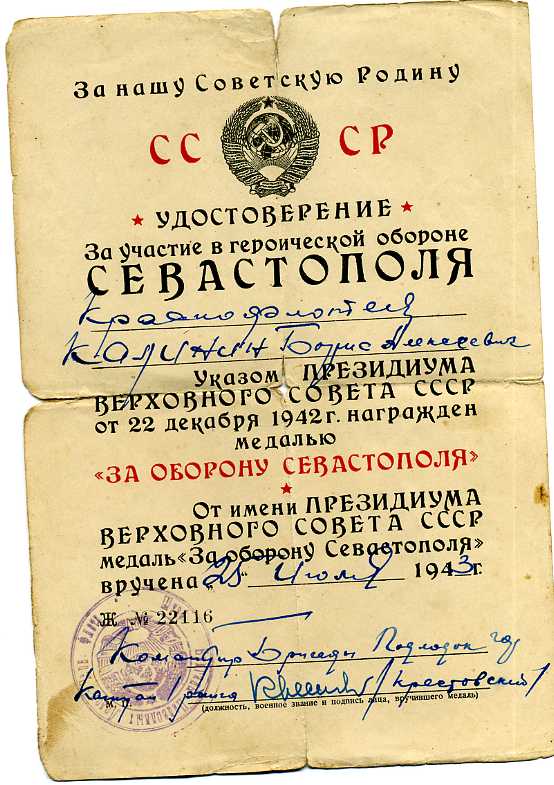 За нашу Советскую Родину
СС СР
УДОСТОВЕРЕНИЕ
За участие в героической обороне
СЕВАСТОПОЛЯ
Краснофлотец
Калинин Борис Алексеевич
Указом ПРЕЗИДИУМА
ВЕРХОВНОГО СОВЕТА СССР
от 22 декабря 1942 г. награжден
медалью
«ЗА ОБОРОНУ СЕВАСТОПОЛЯ»
От имени ПРЕЗИДИУМА
ВЕРХОВНОГО СОВЕТА СССР
медаль «За оборону Севастополя»
вручена „25" Июля 1943 г.
Ж № 22116
Командир Бригады Подлодок
Капитан 1 ранга /Крестовский/
М. П. (должность, военное звание и подпись лица, вручившего медаль)